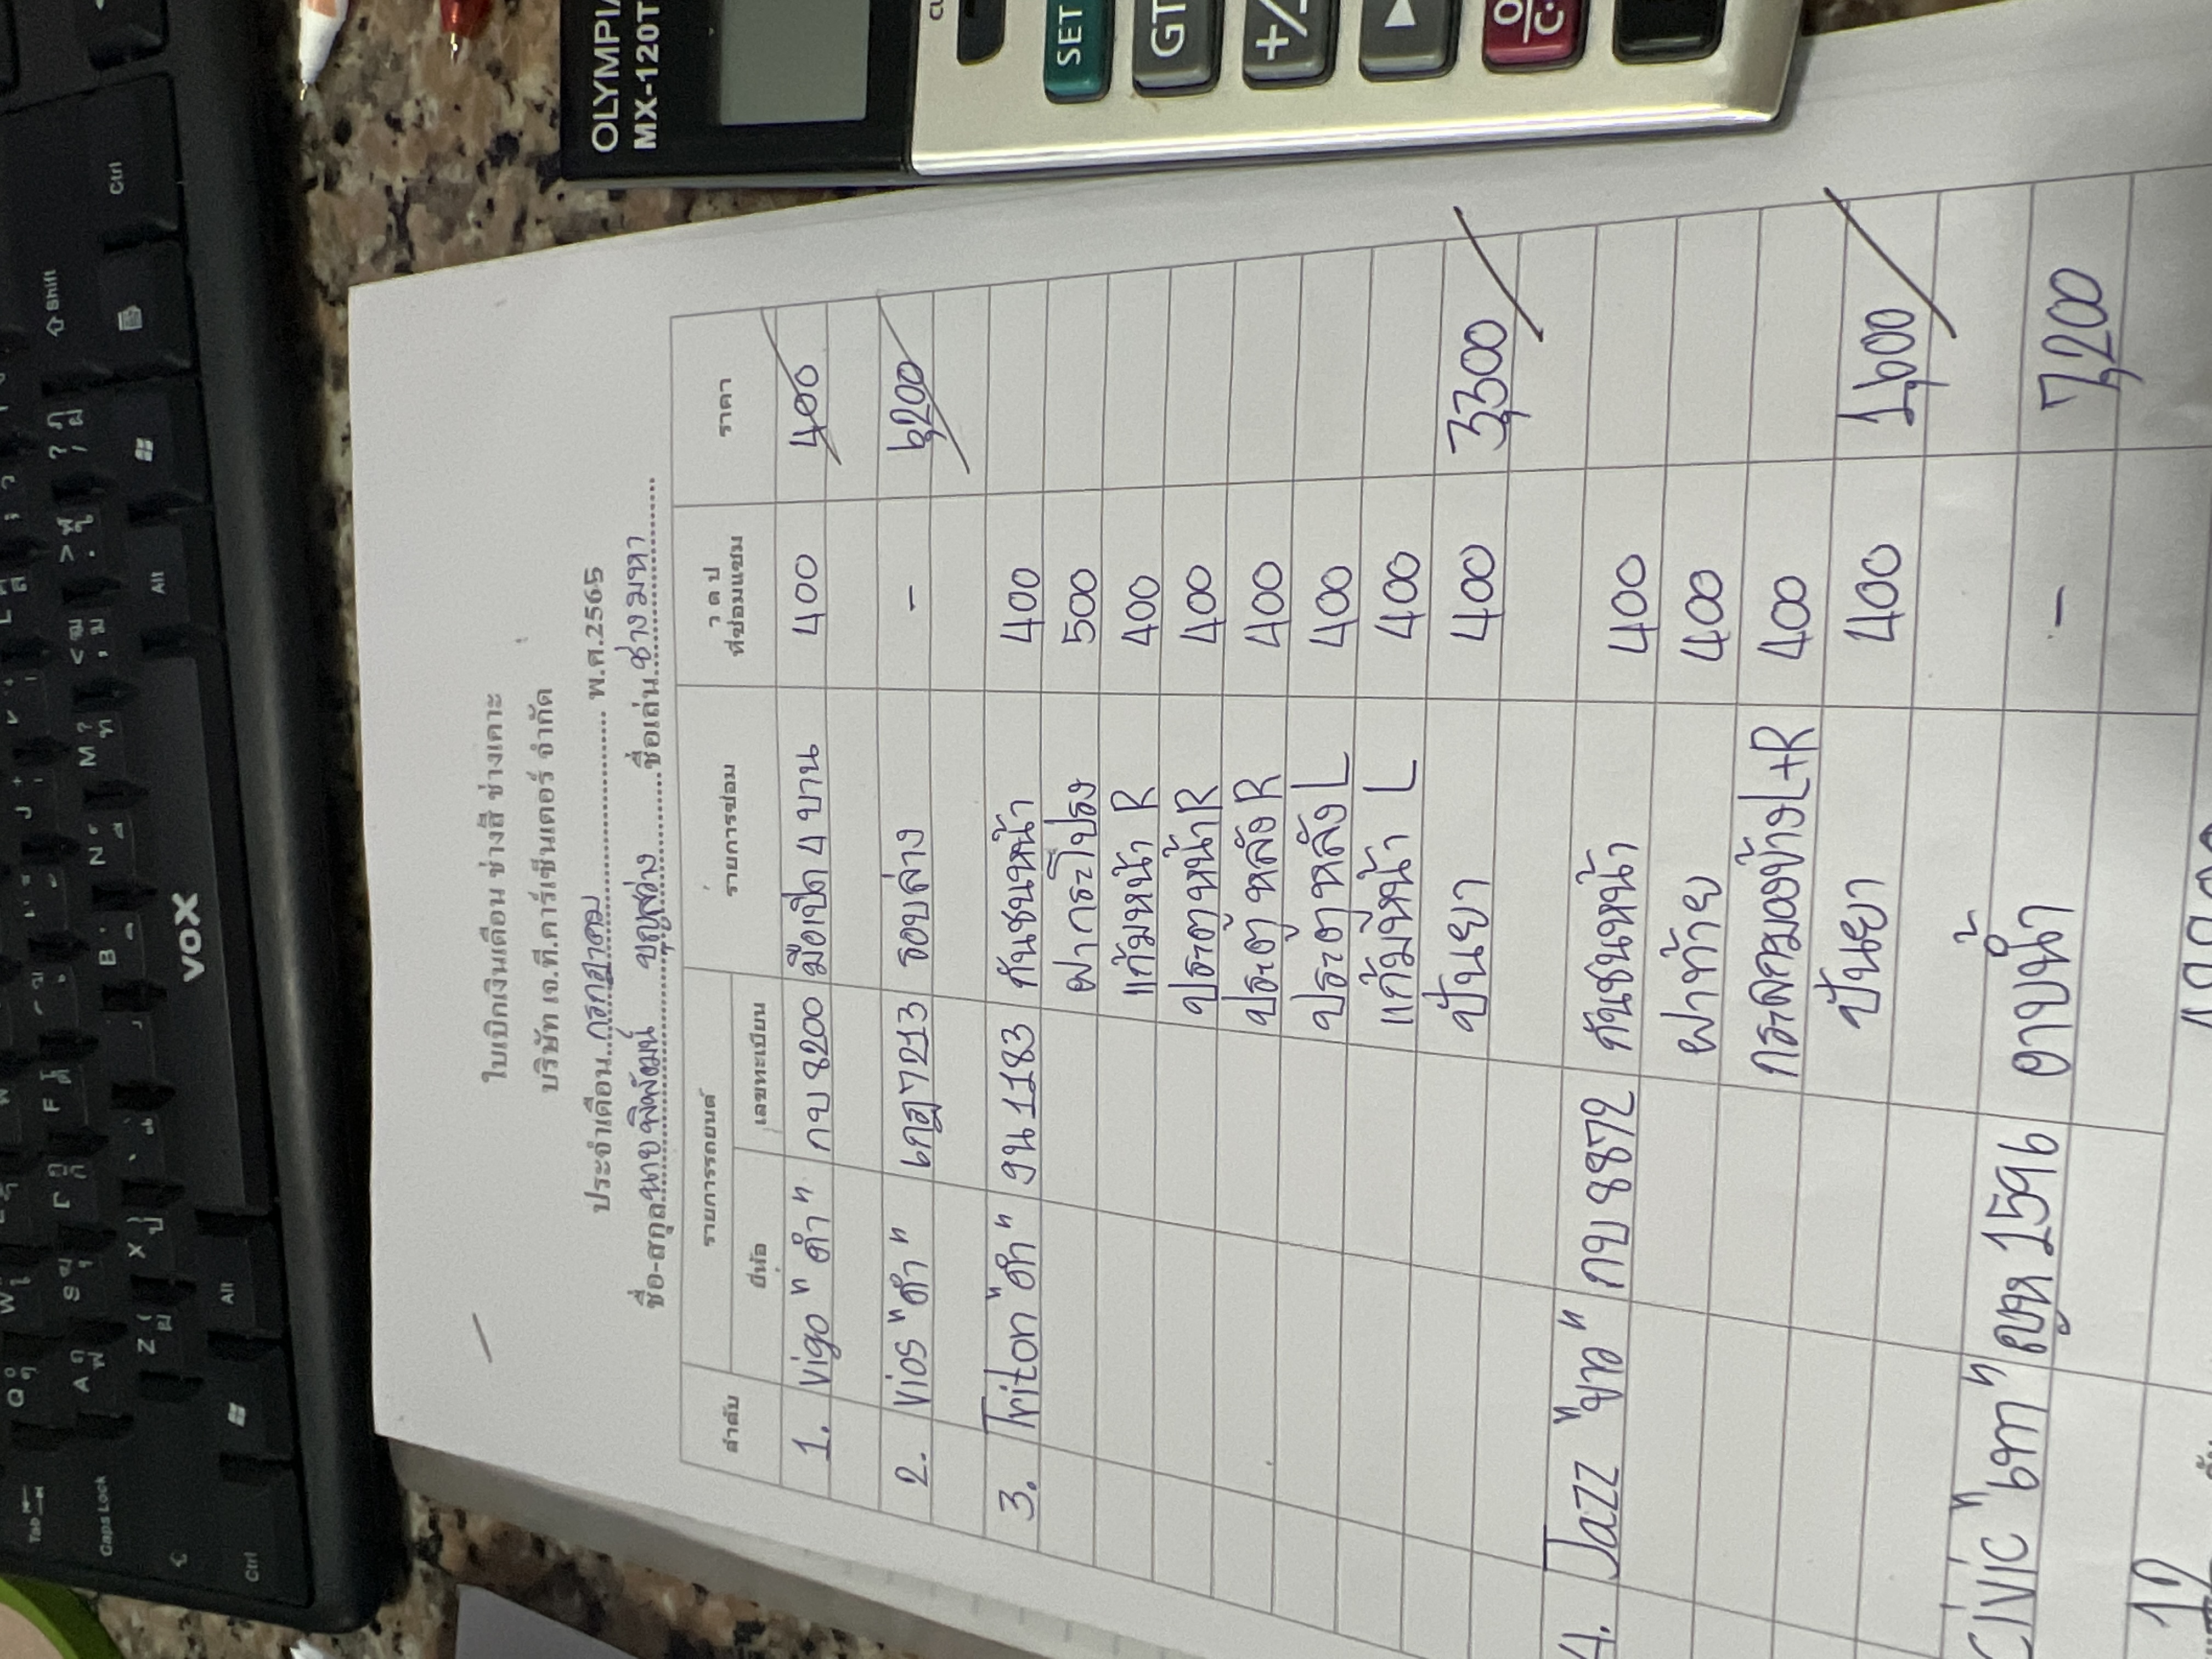 OLYMPIA
MX-120T
SET
GT
+/-
▶
ใบเบิกเงินเดือน ช่างสี ช่างเคาะ
บริษัท เจ.ที.คาร์เซ็นเตอร์ จำกัด
ประจำเดือน กรกฎาคม พ.ศ.2565
ชื่อ-สกุล นายพิพัฒน์ บุญสว่าง ชื่อเล่น ช่างมหา
ลำดับ รายการรถยนต์ รายการซ่อม ว ด ป ที่ซ่อมแซม ราคา
ยี่ห้อ เลขทะเบียน
1. Vigo "ดำ" กบ 8200 มือเปิด 4 บาน 400 400
2. Vios "ดำ" 6กฎ 7213 รอบล่าง - 6,200
3. Triton "ดำ" งน 1183 กันชนหน้า 400
ฝากระโปรง 500
แก้มหน้า R 400
ประตูหน้า R 400
ประตู หลัง R 400
ประตูหลัง L 400
แก้มหน้า L 400
ปั่นยา 400 3,300
4. Jazz "ขาว" กบ 8872 กันชนหน้า 400
ฝาท้าย 400
กระจกมองข้าง L+R 400
ปั่นยา 400 1,600
Civic "เทา" 1596 อาบน้ำ - 7,200
12
VOX
Ctrl
Shift
Alt
Alt
Ctrl
Caps Lock
Tab